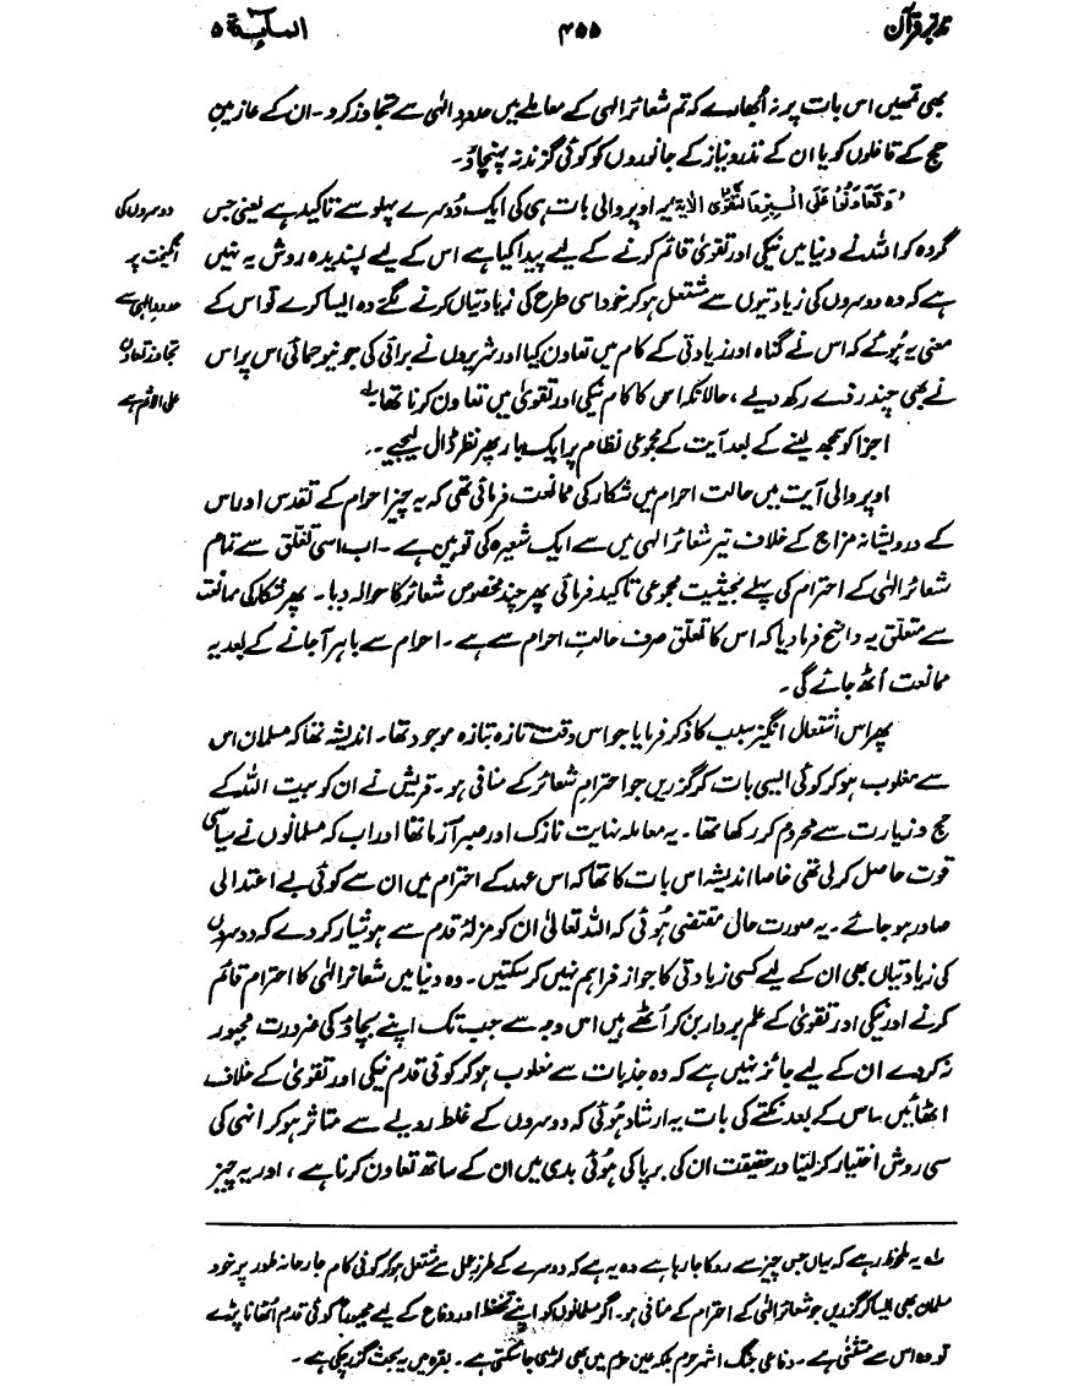 تدبر قرآن
۴۵۵
المآیدۃ ۵
بھی تمھیں اس بات پر نہ اُبھارے کہ تم شعائر الٰہی کے معاملے میں حدود الٰہی سے تجاوز کرو۔ ان کے عازمینِ
حج کے قافلوں کو یا ان کے نذر و نیاز کے جانوروں کو کوئی گزند نہ پہنچاؤ۔
'وَتَعَاوَنُوْا عَلَی الْبِرِّ وَالتَّقْوٰی الایۃ' یہ اوپر والی بات ہی کی ایک دُوسرے پہلو سے تاکید ہے یعنی جس
گروہ کو اللہ نے دنیا میں نیکی اور تقویٰ قائم کرنے کے لیے پیدا کیا ہے اس کے لیے پسندیدہ روش یہ نہیں
ہے کہ وہ دوسروں کی زیادتیوں سے مشتعل ہو کر خود اسی طرح کی زیادتیاں کرنے لگے۔ وہ ایسا کرے تو اس کے
معنی یہ ہُوئے کہ اس نے گناہ اور زیادتی کے کام میں تعاون کیا اور شریروں نے برائی کی جو نیو جمائی اس پر اس
نے بھی چند ردے رکھ دیے، حالانکہ اس کا کام نیکی اور تقویٰ میں تعاون کرنا تھا۔لہ
دوسروں کی
انگیخت پر
حدود الٰہی سے
تجاوز تعاون
علی الاثم ہے
اجزا کو سمجھ لینے کے بعد آیت کے مجموعی نظام پر ایک بار پھر نظر ڈال لیجیے۔
اوپر والی آیت میں حالت احرام میں شکار کی ممانعت فرمائی تھی کہ یہ چیز احرام کے تقدس اور اس
کے درویشانہ مزاج کے خلاف نیز شعائر الٰہی میں سے ایک شعیرہ کی توہین ہے۔ اب اسی تعلّق سے تمام
شعائر الٰہی کے احترام کی پہلے بحیثیت مجموعی تاکید فرمائی پھر چند مخصوص شعائر کا حوالہ دیا۔ پھر شکار کی ممانعت
سے متعلّق یہ واضح فرما دیا کہ اس کا تعلّق صرف حالتِ احرام سے ہے۔ احرام سے باہر آ جانے کے بعد یہ
ممانعت اُٹھ جائے گی۔
پھر اس اشتعال انگیز سبب کا ذکر فرمایا جو اس وقت تازہ بتازہ موجود تھا۔ اندیشہ تھا کہ مسلمان اس
سے مغلوب ہو کر کوئی ایسی بات کر گزریں جو احترامِ شعائر کے منافی ہو۔ قریش نے ان کو بیت اللہ کے
حج و زیارت سے محروم کر رکھا تھا۔ یہ معاملہ نہایت نازک اور صبر آزما تھا اور اب کہ مسلمانوں نے سیاسی
قوت حاصل کر لی تھی خاصا اندیشہ اس بات کا تھا کہ اس عہد کے احترام میں ان سے کوئی بے اعتدالی
صادر ہو جائے۔ یہ صورت حال مقتضی ہُوئی کہ اللہ تعالیٰ ان کو مزلۂ قدم سے ہوشیار کر دے کہ دوسروں
کی زیادتیاں بھی ان کے لیے کسی زیادتی کا جواز فراہم نہیں کر سکتیں۔ وہ دنیا میں شعائر الٰہی کا احترام قائم
کرنے اور نیکی اور تقویٰ کے علم بردار بن کر اُٹھے ہیں اس وجہ سے جب تک اپنے بچاؤ کی ضرورت مجبور
نہ کر دے ان کے لیے جائز نہیں ہے کہ وہ جذبات سے مغلوب ہو کر کوئی قدم نیکی اور تقویٰ کے خلاف
اٹھائیں۔ اس کے بعد نکتے کی بات یہ ارشاد ہُوئی کہ دوسروں کے غلط رویے سے متاثر ہو کر انہی کی
سی روش اختیار کر لینا درحقیقت ان کی برپا کی ہُوئی بدی میں ان کے ساتھ تعاون کرنا ہے، اور یہ چیز
لہ یہ ملحوظ رہے کہ یہاں جس چیز سے روکا جا رہا ہے وہ یہ ہے کہ دوسرے کے طرزِ عمل سے مشتعل ہو کر کوئی کام جارحانہ طور پر خود
مسلمان بھی ایسا کر گزریں جو شعائر الٰہی کے احترام کے منافی ہو۔ اگر مسلمانوں کو اپنے تحفظ اور دفاع کے لیے مجبوراً کوئی قدم اُٹھانا پڑے
تو وہ اس سے مستثنیٰ ہے۔ دفاعی جنگ اشہر حرم بلکہ عین حرم میں بھی لڑی جا سکتی ہے۔ بقرہ میں یہ بحث گزر چکی ہے۔